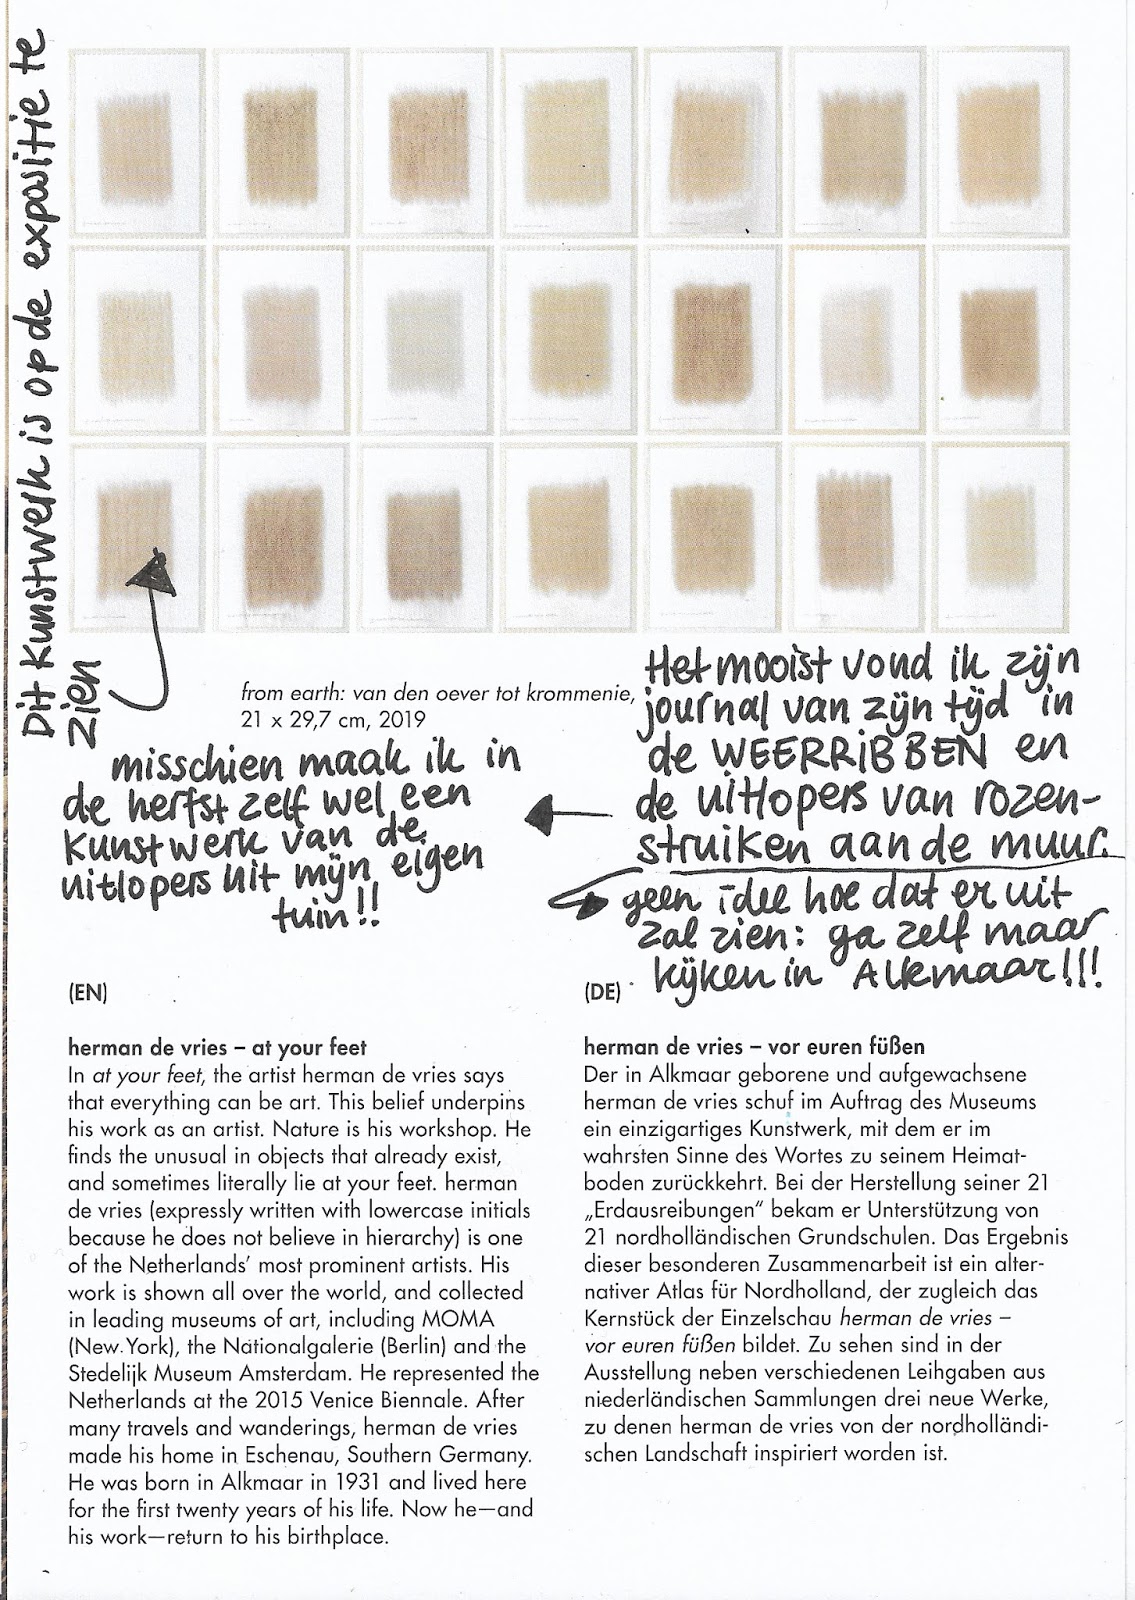 Dit kunstwerk is op de expositie te
zien
from earth: van den oever tot krommenie,
21 x 29,7 cm, 2019
misschien maak ik in
de herfst zelf wel een
kunstwerk van de
uitlopers uit mijn eigen
tuin!!
Het mooist vond ik zijn
journal van zijn tijd in
de WEERRIBBEN en
de uitlopers van rozen-
struiken aan de muur.
geen idee hoe dat er uit
zal zien: ga zelf maar
kijken in Alkmaar!!!
(EN)
herman de vries – at your feet
In at your feet, the artist herman de vries says
that everything can be art. This belief underpins
his work as an artist. Nature is his workshop. He
finds the unusual in objects that already exist,
and sometimes literally lie at your feet. herman
de vries (expressly written with lowercase initials
because he does not believe in hierarchy) is one
of the Netherlands’ most prominent artists. His
work is shown all over the world, and collected
in leading museums of art, including MOMA
(New York), the Nationalgalerie (Berlin) and the
Stedelijk Museum Amsterdam. He represented the
Netherlands at the 2015 Venice Biennale. After
many travels and wanderings, herman de vries
made his home in Eschenau, Southern Germany.
He was born in Alkmaar in 1931 and lived here
for the first twenty years of his life. Now he—and
his work—return to his birthplace.
(DE)
herman de vries – vor euren füßen
Der in Alkmaar geborene und aufgewachsene
herman de vries schuf im Auftrag des Museums
ein einzigartiges Kunstwerk, mit dem er im
wahrsten Sinne des Wortes zu seinem Heimat-
boden zurückkehrt. Bei der Herstellung seiner 21
„Erdausreibungen“ bekam er Unterstützung von
21 nordholländischen Grundschulen. Das Ergebnis
dieser besonderen Zusammenarbeit ist ein alter-
nativer Atlas für Nordholland, der zugleich das
Kernstück der Einzelschau herman de vries –
vor euren füßen bildet. Zu sehen sind in der
Ausstellung neben verschiedenen Leihgaben aus
niederländischen Sammlungen drei neue Werke,
zu denen herman de vries von der nordholländi-
schen Landschaft inspiriert worden ist.